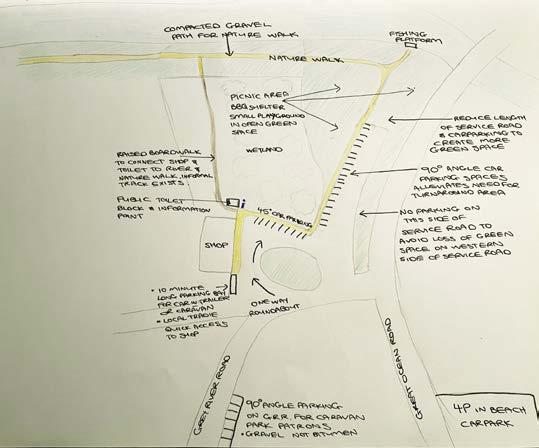 COMPACTED GRAVEL
PATH FOR NATURE WALK
FISHING
PLATFORM
NATURE WALK
PICNIC AREA
BBQ SHELTER
SMALL PLAYGROUND
IN OPEN GREEN
SPACE
WETLAND
REDUCE LENGTH
OF SERVICE ROAD
& CARPARKING TO
CREATE MORE
GREEN SPACE
RAISED BOARDWALK
TO CONNECT SHOP &
TOILET TO RIVER &
NATURE WALK, INFORMAL
TRACK EXISTS
90° ANGLE CAR
PARKING SPACES
ALLEVIATES NEED FOR
TURNAROUND AREA
PUBLIC TOILET
BLOCK & INFORMATION
POINT
i
45° CAR PARKING
NO PARKING ON
THIS SIDE OF
SERVICE ROAD TO
AVOID LOSS OF GREEN
SPACE ON WESTERN
SIDE OF SERVICE ROAD
SHOP
• 10 MINUTE
LONG PARKING BAY
FOR CAR W TRAILER
OR CARAVAN
• LOCAL TRADIE
QUICK ACCESS
TO SHOP
ONE WAY
ROUNDABOUT
GREY RIVER ROAD
GREAT OCEAN ROAD
90° ANGLE PARKING
ON G.R.R. FOR CARAVAN
PARK PATRONS
• GRAVEL NOT BITUMEN
4P IN BEACH
CARPARK